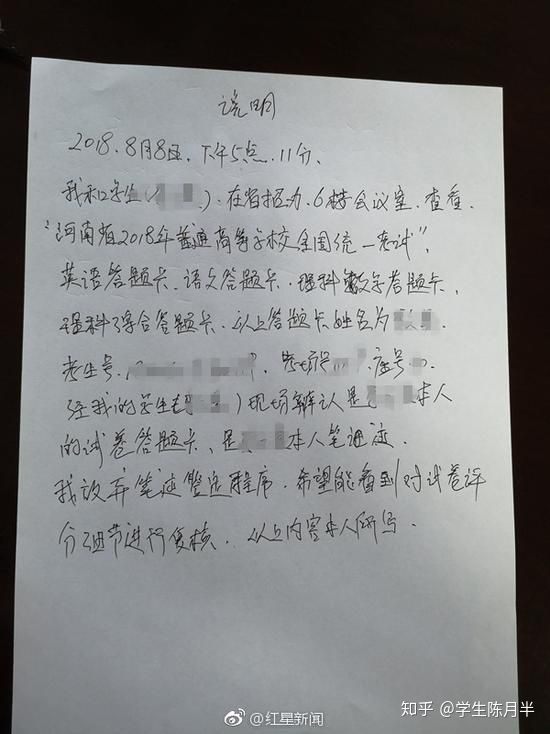 说明
2018.8月8日.下午5点.11分.
我和学生( ).在省招办.6楼会议室.查看.
"河南省2018年普通高等学校全国统一考试",
英语答题卡.语文答题卡.理科数学答题卡.
理科综合答题卡.以上答题卡姓名为
考生号. 考场号 .座号
经我的学生 )现场辨认是 本人
的试卷答题卡.是 本人笔迹.
我放弃笔迹鉴定程序.希望能看到对试卷评
分细节进行复核.以上内容本人所写.
@红星新闻
知乎 @学生陈月半